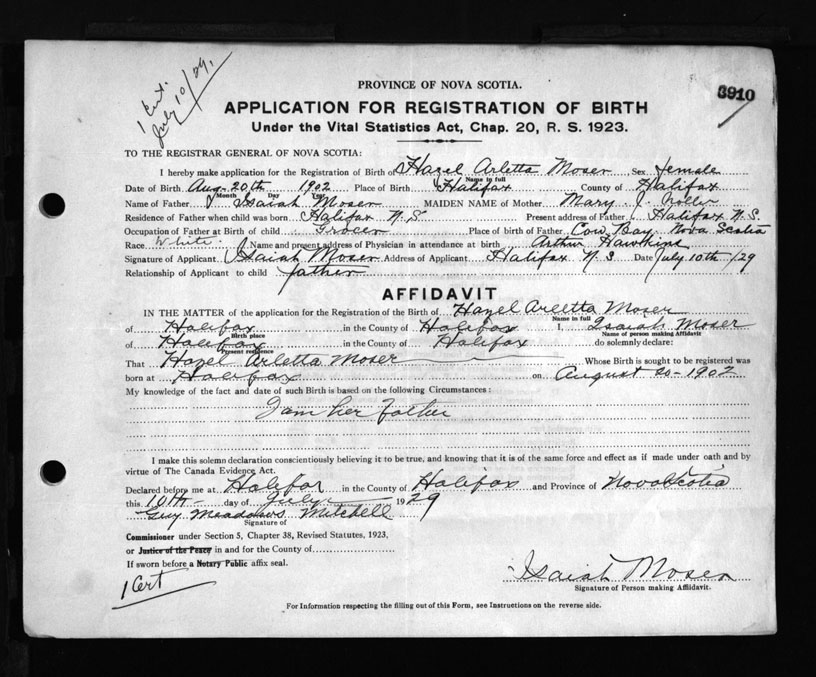 1 Cert.
July 10/29.
3910
PROVINCE OF NOVA SCOTIA.
APPLICATION FOR REGISTRATION OF BIRTH
Under the Vital Statistics Act, Chap. 20, R. S. 1923.
TO THE REGISTRAR GENERAL OF NOVA SCOTIA:
I hereby make application for the Registration of Birth of Hazel Arletta Moser Sex female
Name in full
Date of Birth Aug. 20th 1902 Place of Birth Halifax County of Halifax
Month Day Year
Name of Father Isaiah Moser MAIDEN NAME of Mother Mary J.
Residence of Father when child was born Halifax N.S. Present address of Father Halifax N.S.
Occupation of Father at Birth of child Grocer Place of birth of Father Cow Bay, Nova Scotia
Race White. Name and present address of Physician in attendance at birth Arthur Hawkins
Signature of Applicant Isaiah Moser Address of Applicant Halifax N S Date July 10th /29
Relationship of Applicant to child father
AFFIDAVIT
IN THE MATTER of the application for the Registration of the Birth of Hazel Arletta Moser
Name in full
of Halifax in the County of Halifax I, Isaiah Moser
Birth place Name of person making Affidavit
of Halifax Halifax do solemnly declare:
Present residence
That Hazel Arletta Moser Whose Birth is sought to be registered was
born at Halifax on August 20-1902
My knowledge of the fact and date of such Birth is based on the following Circumstances:
I am her Father
I make this solemn declaration conscientiously believing it to be true, and knowing that it is of the same force and effect as if made under oath and by
virtue of The Canada Evidence Act.
Declared before me at Halifax in the County of Halifax and Province of Nova Scotia
this 10th day of July 1929
Guy Meadows Mitchell
Signature of
Commissioner under Section 5, Chapter 38, Revised Statutes, 1923,
or Justice of the Peace in and for the County of
If sworn before a Notary Public affix seal.
1 Cert
Isaiah Moser
Signature of Person making Affidavit.
For Information respecting the filling out of this Form, see Instructions on the reverse side.